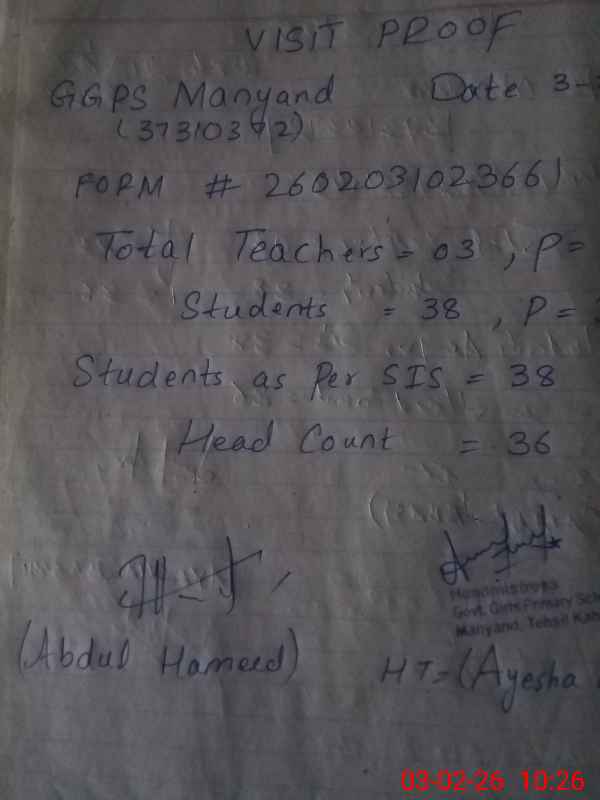 VISIT PROOF
GGPS Manyand Date 3-
(37310392)
FORM # 2602031023661
Total Teachers = 03, P=
Students = 38, P=
Students as Per SIS = 38
Head Count = 36
Headmistress
Govt. Girls Primary Sch
Manyand, Tehsil Kah
(Abdul Hameed) HT=(Ayesha
03-02-26 10:26